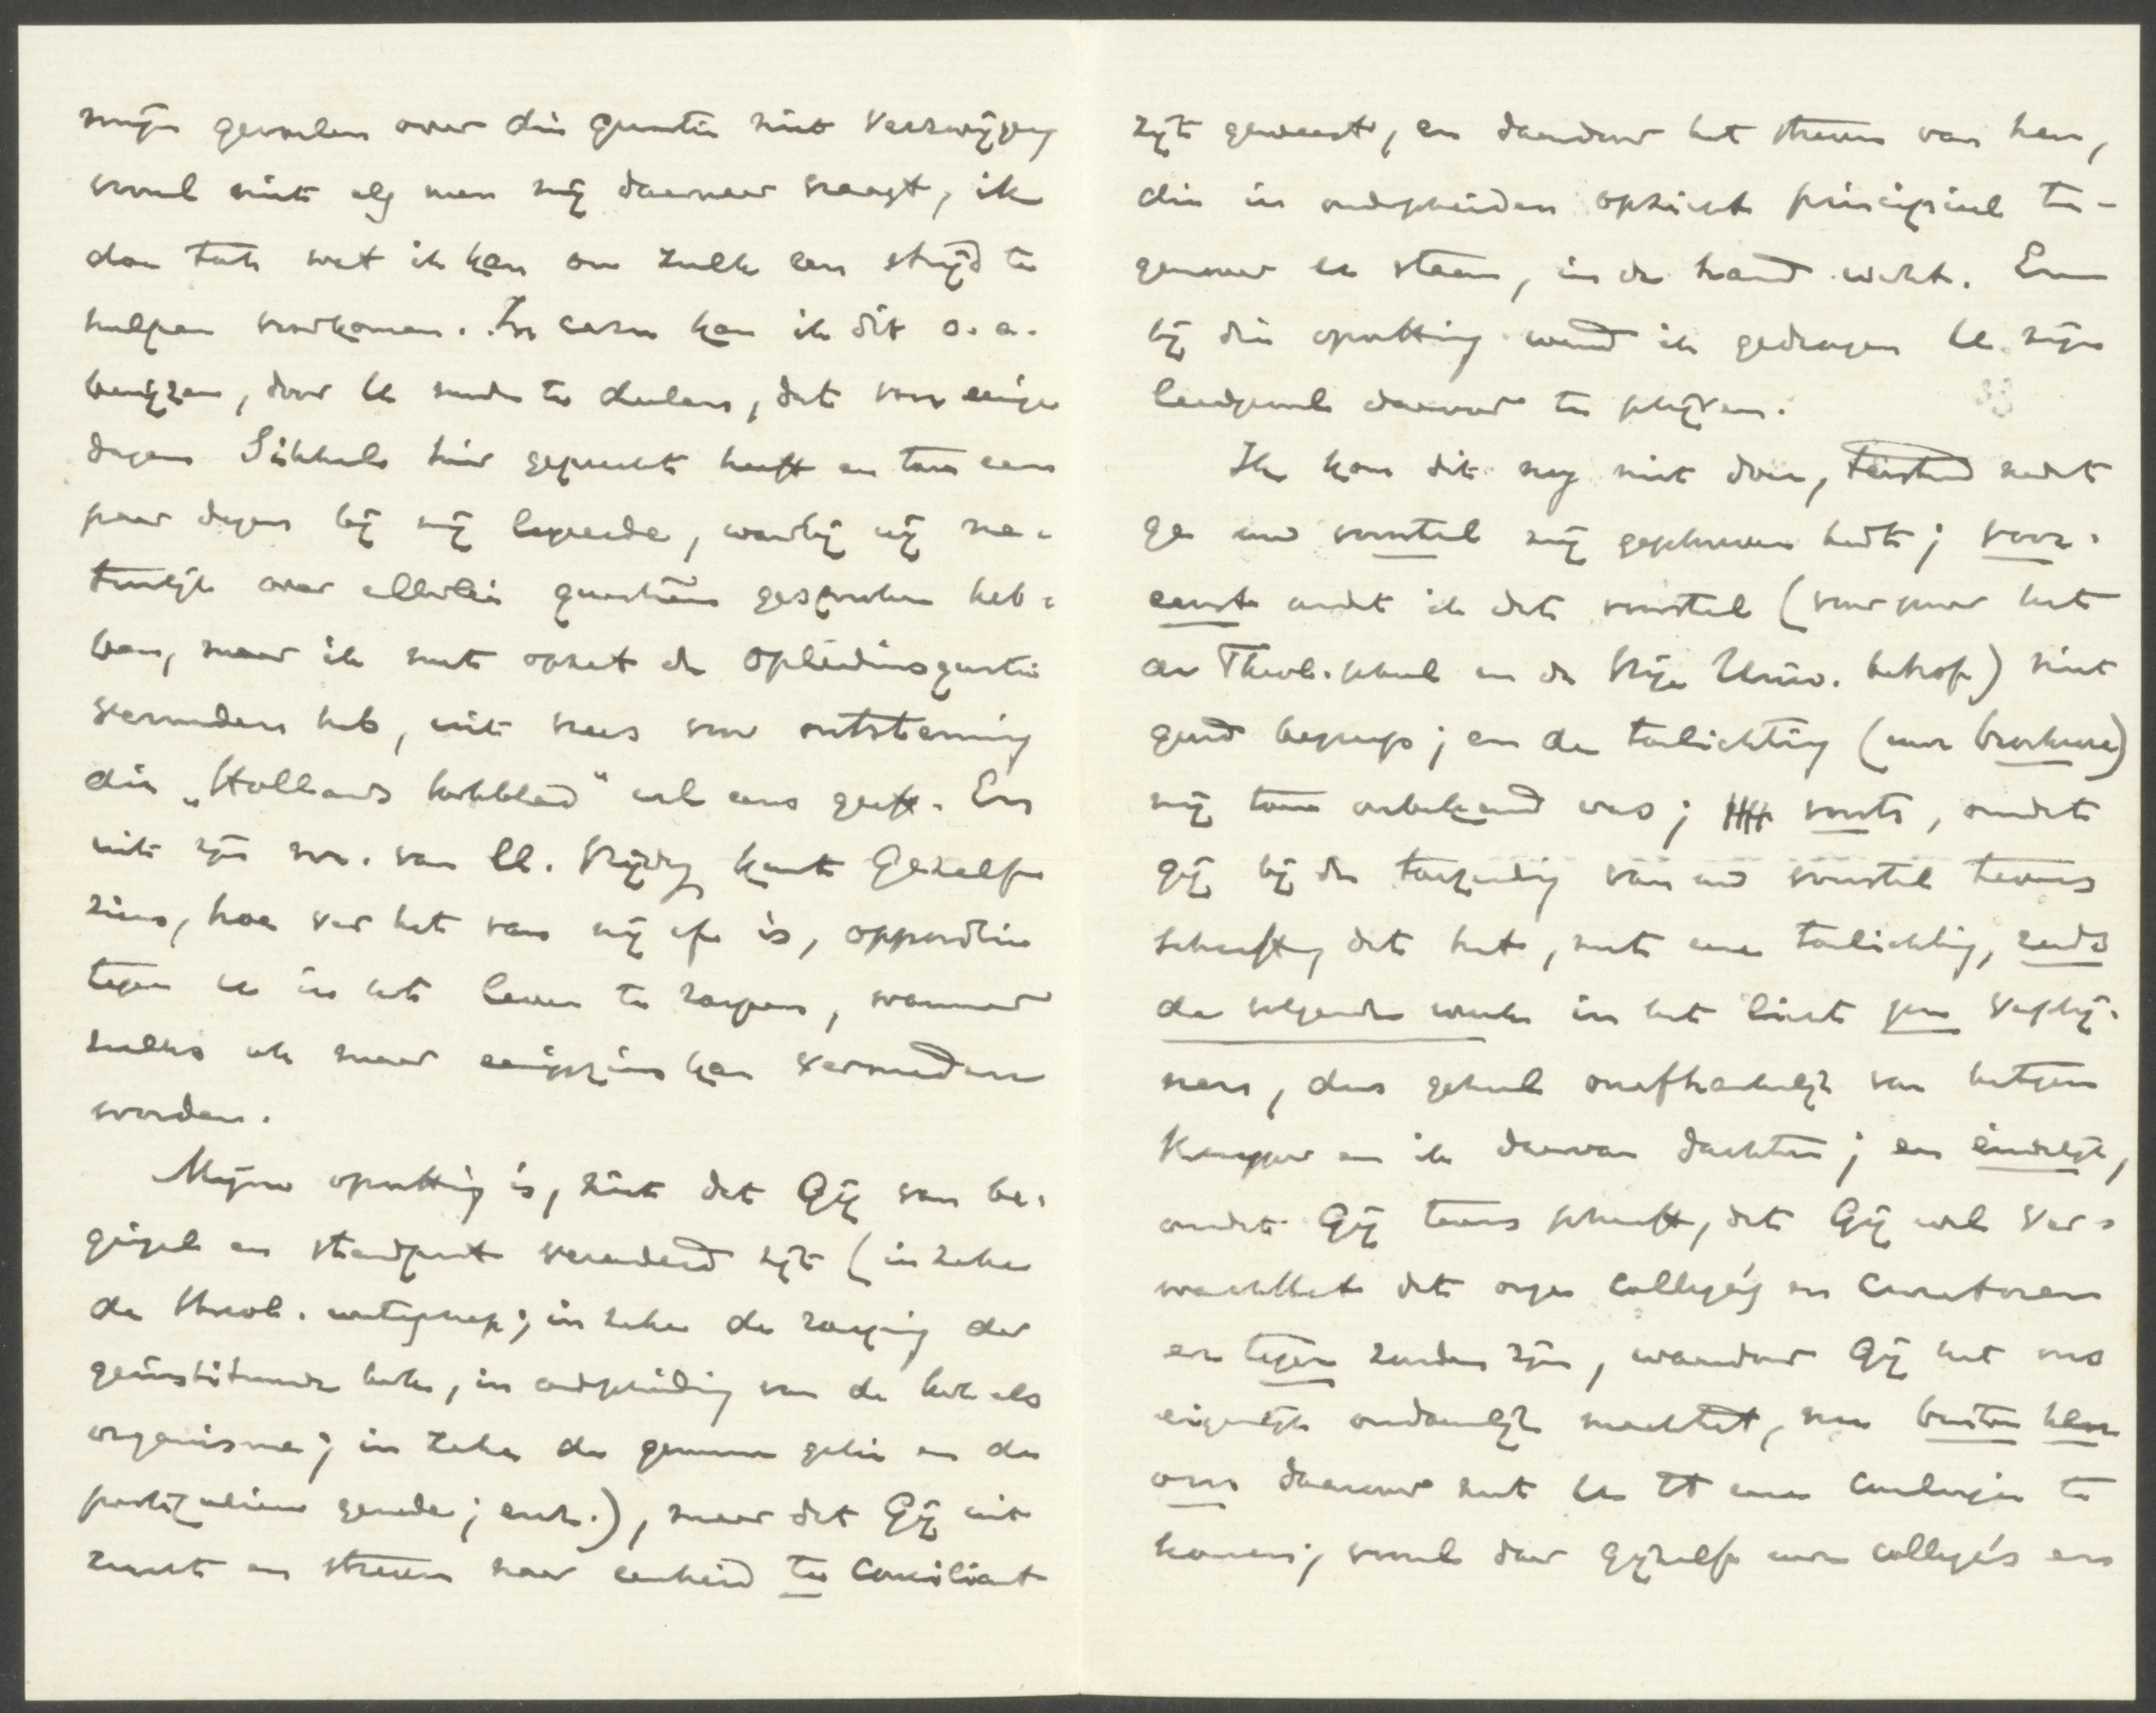 mijn gevoelen over die quaestie niet verzwijgen
vooral niet als men mij daarnaar vraagt, ik
doe toch wat ik kan om zulk een strijd te
helpen voorkomen. In casu kan ik dit o.a.
bewijzen, door U mede te deelen, dat voor eenige
dagen Sikkel hier gepreekt heeft en toen een
paar dagen bij mij logeerde, waarbij wij na-
tuurlijk over allerlei quaestiën gesproken heb-
ben, maar ik met opzet de opleidingsquaestie
vermeden heb, uit vrees voor ontstemming
die „Hollands Kerkblad" wel eens geeft. En
uit zijn no. van ll. Vrijdag kunt Gijzelf
zien, hoe ver het van mij af is, oppositie
tegen U in het leven te roepen, wanneer
zulks ook maar eenigszins kan vermeden
worden.
Mijne opvatting is, niet dat Gij van be-
ginsel en standpunt veranderd zijt (in zake
de theol. wetenschap; in zake de roeping der
geïnstitueerde kerk, in onderscheiding van de kerk als
organisme; in zake de gemeene gratie en de
particuliere genade; enz.), maar dat Gij uit
zucht en streven naar eenheid te conciliant
zijt geweest, en daardoor het streven van hen,
die in onderscheiden opzicht principieel te-
genover U staan, in de hand werkt. En
bij die opvatting werd ik gedrongen U mijn
leedwezen daarover te schrijven.
Ik kon dit nog niet doen, terstond nadat
ge uw voorstel mij geschreven hadt; voor-
eerst omdat ik dat voorstel (voor zoover het
de Theol. School en de Vrije Univ. betrof) niet
goed begreep; en de toelichting (uwe brochure)
mij toen onbekend was; voorts, omdat
Gij bij de toezending van uw voorstel tevens
schreeft, dat het, met eene toelichting, reeds
de volgende week in het licht zou verschij-
nen, dus geheel onafhankelijk van hetgeen
Kuyper en ik daarvan dachten; en eindelijk,
omdat Gij tevens schreeft, dat Gij wel ver-
wachttet dat onze collega's en Curatoren
er tegen zouden zijn, waardoor Gij het ons
eigenlijk ondoenlijk maaktet, nu buiten hen
om daarover met U tot eene conclusie te
komen; vooral daar Gijzelf uwe collega's en